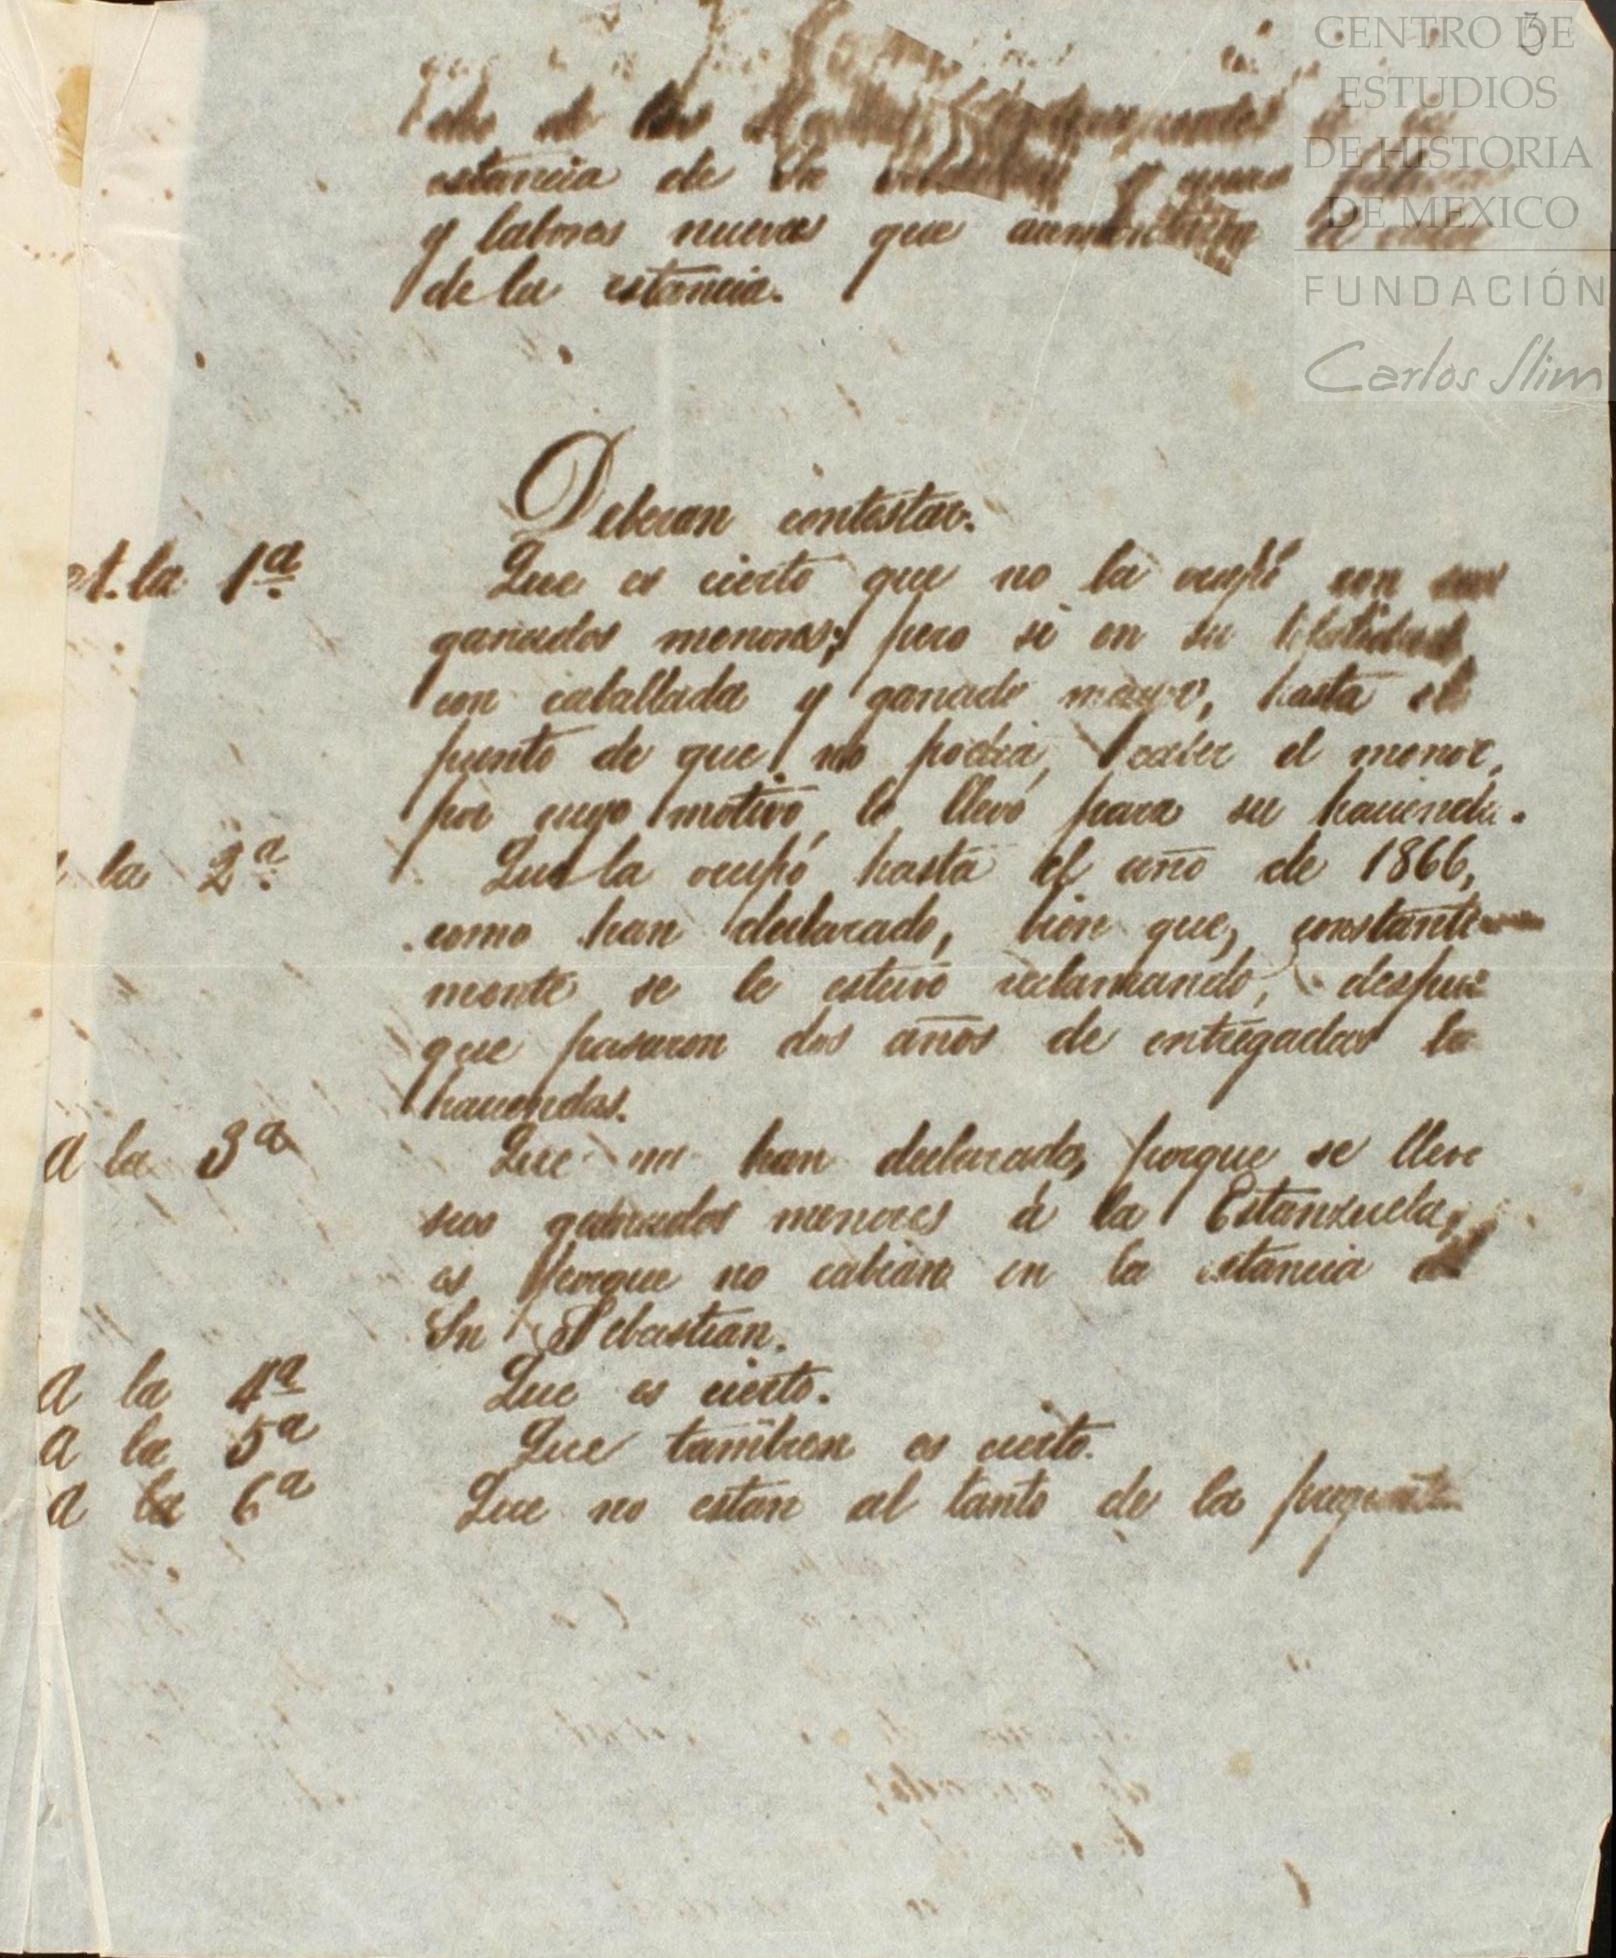 3
CENTRO DE
ESTUDIOS
DE HISTORIA
DE MEXICO
FUNDACIÓN
Carlos Slim
de los
estancia de Sn y
y labores nuevas que aumentaron el valor
de la estancia.
Deberan contestar.
A la 1ª Que es cierto que no la ocupó con sus
ganados menores; pero si en su totalidad
con caballada y ganado mayor, hasta el
punto de que no podia caber el menor,
por cuyo motivo, lo llevó para su hacienda.
a la 2ª Que la ocupó hasta el año de 1866,
como han declarado, bien que, constante
mente se le estuvo reclamando, despues
que pasaron dos años de entregadas la
haciendas.
A la 3ª Que han declarado, porque se lleve
sus ganados menores á la Estanzuela,
es porque no cabian en la estancia de
Sn Sebastian.
A la 4ª Que es cierto.
A la 5ª Que tambien es cierto.
A la 6ª Que no estan al tanto de la pregunta